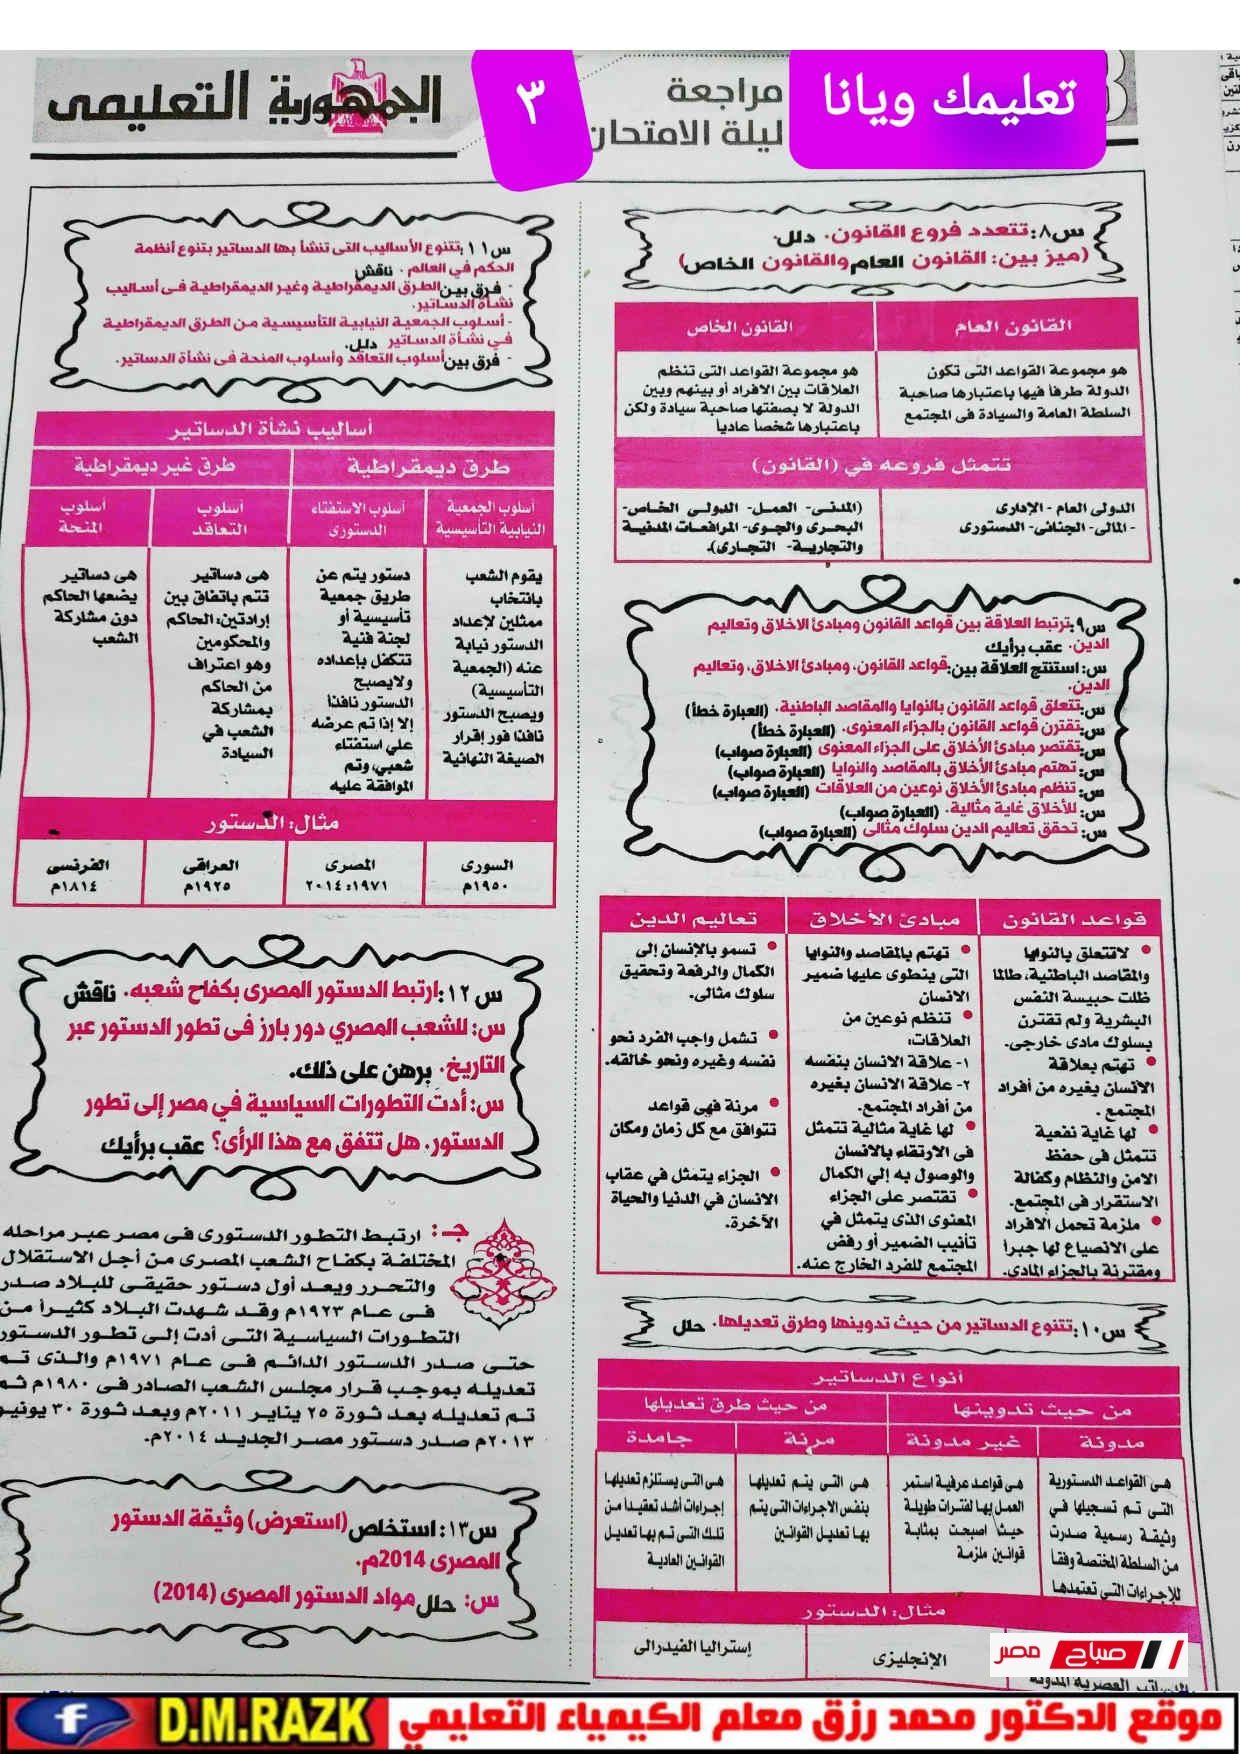 تعليمك ويانا
مراجعة
ليلة الامتحان
٣
الجمهورية التعليمى
س٨: تتعدد فروع القانون. دلل.
(ميز بين: القانون العام والقانون الخاص)
القانون العام
القانون الخاص
هو مجموعة القواعد التى تكون
الدولة طرفاً فيها باعتبارها صاحبة
السلطة العامة والسيادة فى المجتمع
هو مجموعة القواعد التى تنظم
العلاقات بين الافراد أو بينهم وبين
الدولة لا بصفتها صاحبة سيادة ولكن
باعتبارها شخصاً عادياً
تتمثل فروعه في (القانون)
الدولى العام - الإدارى
- المالى- الجنائى- الدستورى
(المدنى- العمل- الدولى الخاص-
البحرى والجوى- المرافعات المدنية
والتجارية- التجارى).
س٩: ترتبط العلاقة بين قواعد القانون ومبادئ الاخلاق وتعاليم
الدين. عقب برأيك
س: استنتج العلاقة بين: قواعد القانون، ومبادئ الاخلاق، وتعاليم
الدين.
س: تتعلق قواعد القانون بالنوايا والمقاصد الباطنية. (العبارة خطأ)
س: تقترن قواعد القانون بالجزاء المعنوى. (العبارة خطأ)
س: تقتصر مبادئ الأخلاق على الجزاء المعنوى (العبارة صواب)
س: تهتم مبادئ الأخلاق بالمقاصد والنوايا (العبارة صواب)
س: تنظم مبادئ الأخلاق نوعين من العلاقات (العبارة صواب)
س: للأخلاق غاية مثالية. (العبارة صواب)
س: تحقق تعاليم الدين سلوك مثالى (العبارة صواب)
قواعد القانون
مبادئ الأخلاق
تعاليم الدين
• لاتتعلق بالنوايا
والمقاصد الباطنية، طالما
ظلت حبيسة النفس
البشرية ولم تقترن
بسلوك مادى خارجى.
• تهتم بعلاقة
الانسان بغيره من أفراد
المجتمع .
• لها غاية نفعية
تتمثل فى حفظ
الامن والنظام وكفالة
الاستقرار فى المجتمع.
• ملزمة تحمل الافراد
على الانصياع لها جبراً
ومقترنة بالجزاء المادى.
• تهتم بالمقاصد والنوايا
التى ينطوى عليها ضمير
الانسان
• تنظم نوعين من
العلاقات:
١- علاقة الانسان بنفسه
٢- علاقة الانسان بغيره
من أفراد المجتمع.
• لها غاية مثالية تتمثل
فى الارتقاء بالانسان
والوصول به إلي الكمال
• تقتصر على الجزاء
المعنوى الذى يتمثل في
تأنيب الضمير أو رفض
المجتمع للفرد الخارج عنه.
• تسمو بالإنسان إلى
الكمال والرفعة وتحقيق
سلوك مثالى.
• تشمل واجب الفرد نحو
نفسه وغيره ونحو خالقه.
• مرنة فهى قواعد
تتوافق مع كل زمان ومكان
• الجزاء يتمثل في عقاب
الانسان في الدنيا والحياة
الآخرة.
س١٠: تتنوع الدساتير من حيث تدوينها وطرق تعديلها. حلل
أنواع الدساتير
من حيث تدوينها
من حيث طرق تعديلها
مدونة
غير مدونة
مرنة
جامدة
هى القواعد الدستورية
التى تم تسجيلها في
وثيقة رسمية صدرت
من السلطة المختصة وفقاً
للإجراءات التى تعتمدها
هى قواعد عرفية استمر
العمل بها لفترات طويلة
حيث اصبحت بمثابة
قوانين ملزمة
هى التى يتم تعديلها
بنفس الاجراءات التى يتم
بها تعديل القوانين
هى التى يستلزم تعديلها
إجراءات أشد تعقيداً من
تلك التى تم بها تعديل
القوانين العادية
مثال: الدستور
الدساتير العصرية المدونة
الإنجليزى
إستراليا الفيدرالى
س١١: تتنوع الأساليب التى تنشأ بها الدساتير بتنوع أنظمة
الحكم في العالم . ناقش
- فرق بين الطرق الديمقراطية وغير الديمقراطية فى أساليب
نشأة الدساتير.
- أسلوب الجمعية النيابية التأسيسية من الطرق الديمقراطية
في نشأة الدساتير دلل.
- فرق بين أسلوب التعاقد وأسلوب المنحة فى نشأة الدساتير.
أساليب نشأة الدساتير
طرق ديمقراطية
طرق غير ديمقراطية
أسلوب الجمعية
النيابية التأسيسية
أسلوب الاستفتاء
الدستورى
أسلوب
التعاقد
أسلوب
المنحة
يقوم الشعب
بانتخاب
ممثلين لإعداد
الدستور نيابة
عنه (الجمعية
التأسيسية)
ويصبح الدستور
نافذا فور إقرار
الصيغة النهائية
دستور يتم عن
طريق جمعية
تأسيسية أو
لجنة فنية
تتكفل بإعداده
ولايصبح
الدستور نافذا
إلا إذا تم عرضه
علي استفتاء
شعبي، وتم
الموافقة عليه
هى دساتير
تتم باتفاق بين
إرادتين: الحاكم
والمحكومين
وهو اعتراف
من الحاكم
بمشاركة
الشعب في
السيادة
هى دساتير
يضعها الحاكم
دون مشاركة
الشعب
مثال: الدستور
السورى
١٩٥٠م
المصرى
١٩٧١: ٢٠١٤
العراقى
١٩٢٥م
الفرنسى
١٨١٤م
س ١٢: ارتبط الدستور المصرى بكفاح شعبه. ناقش
س: للشعب المصري دور بارز فى تطور الدستور عبر
التاريخ. برهن على ذلك.
س: أدت التطورات السياسية في مصر إلى تطور
الدستور. هل تتفق مع هذا الرأى؟ عقب برأيك
جـ: ارتبط التطور الدستورى فى مصر عبر مراحله
المختلفة بكفاح الشعب المصرى من أجل الاستقلال
والتحرر ويعد أول دستور حقيقى للبلاد صدر
فى عام ١٩٢٣م وقد شهدت البلاد كثيراً من
التطورات السياسية التى أدت إلى تطور الدستور
حتى صدر الدستور الدائم فى عام ١٩٧١م والذى تم
تعديله بموجب قرار مجلس الشعب الصادر فى ١٩٨٠م ثم
تم تعديله بعد ثورة ٢٥ يناير ٢٠١١م وبعد ثورة ٣٠ يونيو
٢٠١٣م صدر دستور مصر الجديد ٢٠١٤م.
س١٣: استخلص (استعرض) وثيقة الدستور
المصرى 2014م.
س: حلل مواد الدستور المصرى (2014)
صباح مصر
موقع الدكتور محمد رزق معلم الكيمياء التعليمي D.M.RAZK